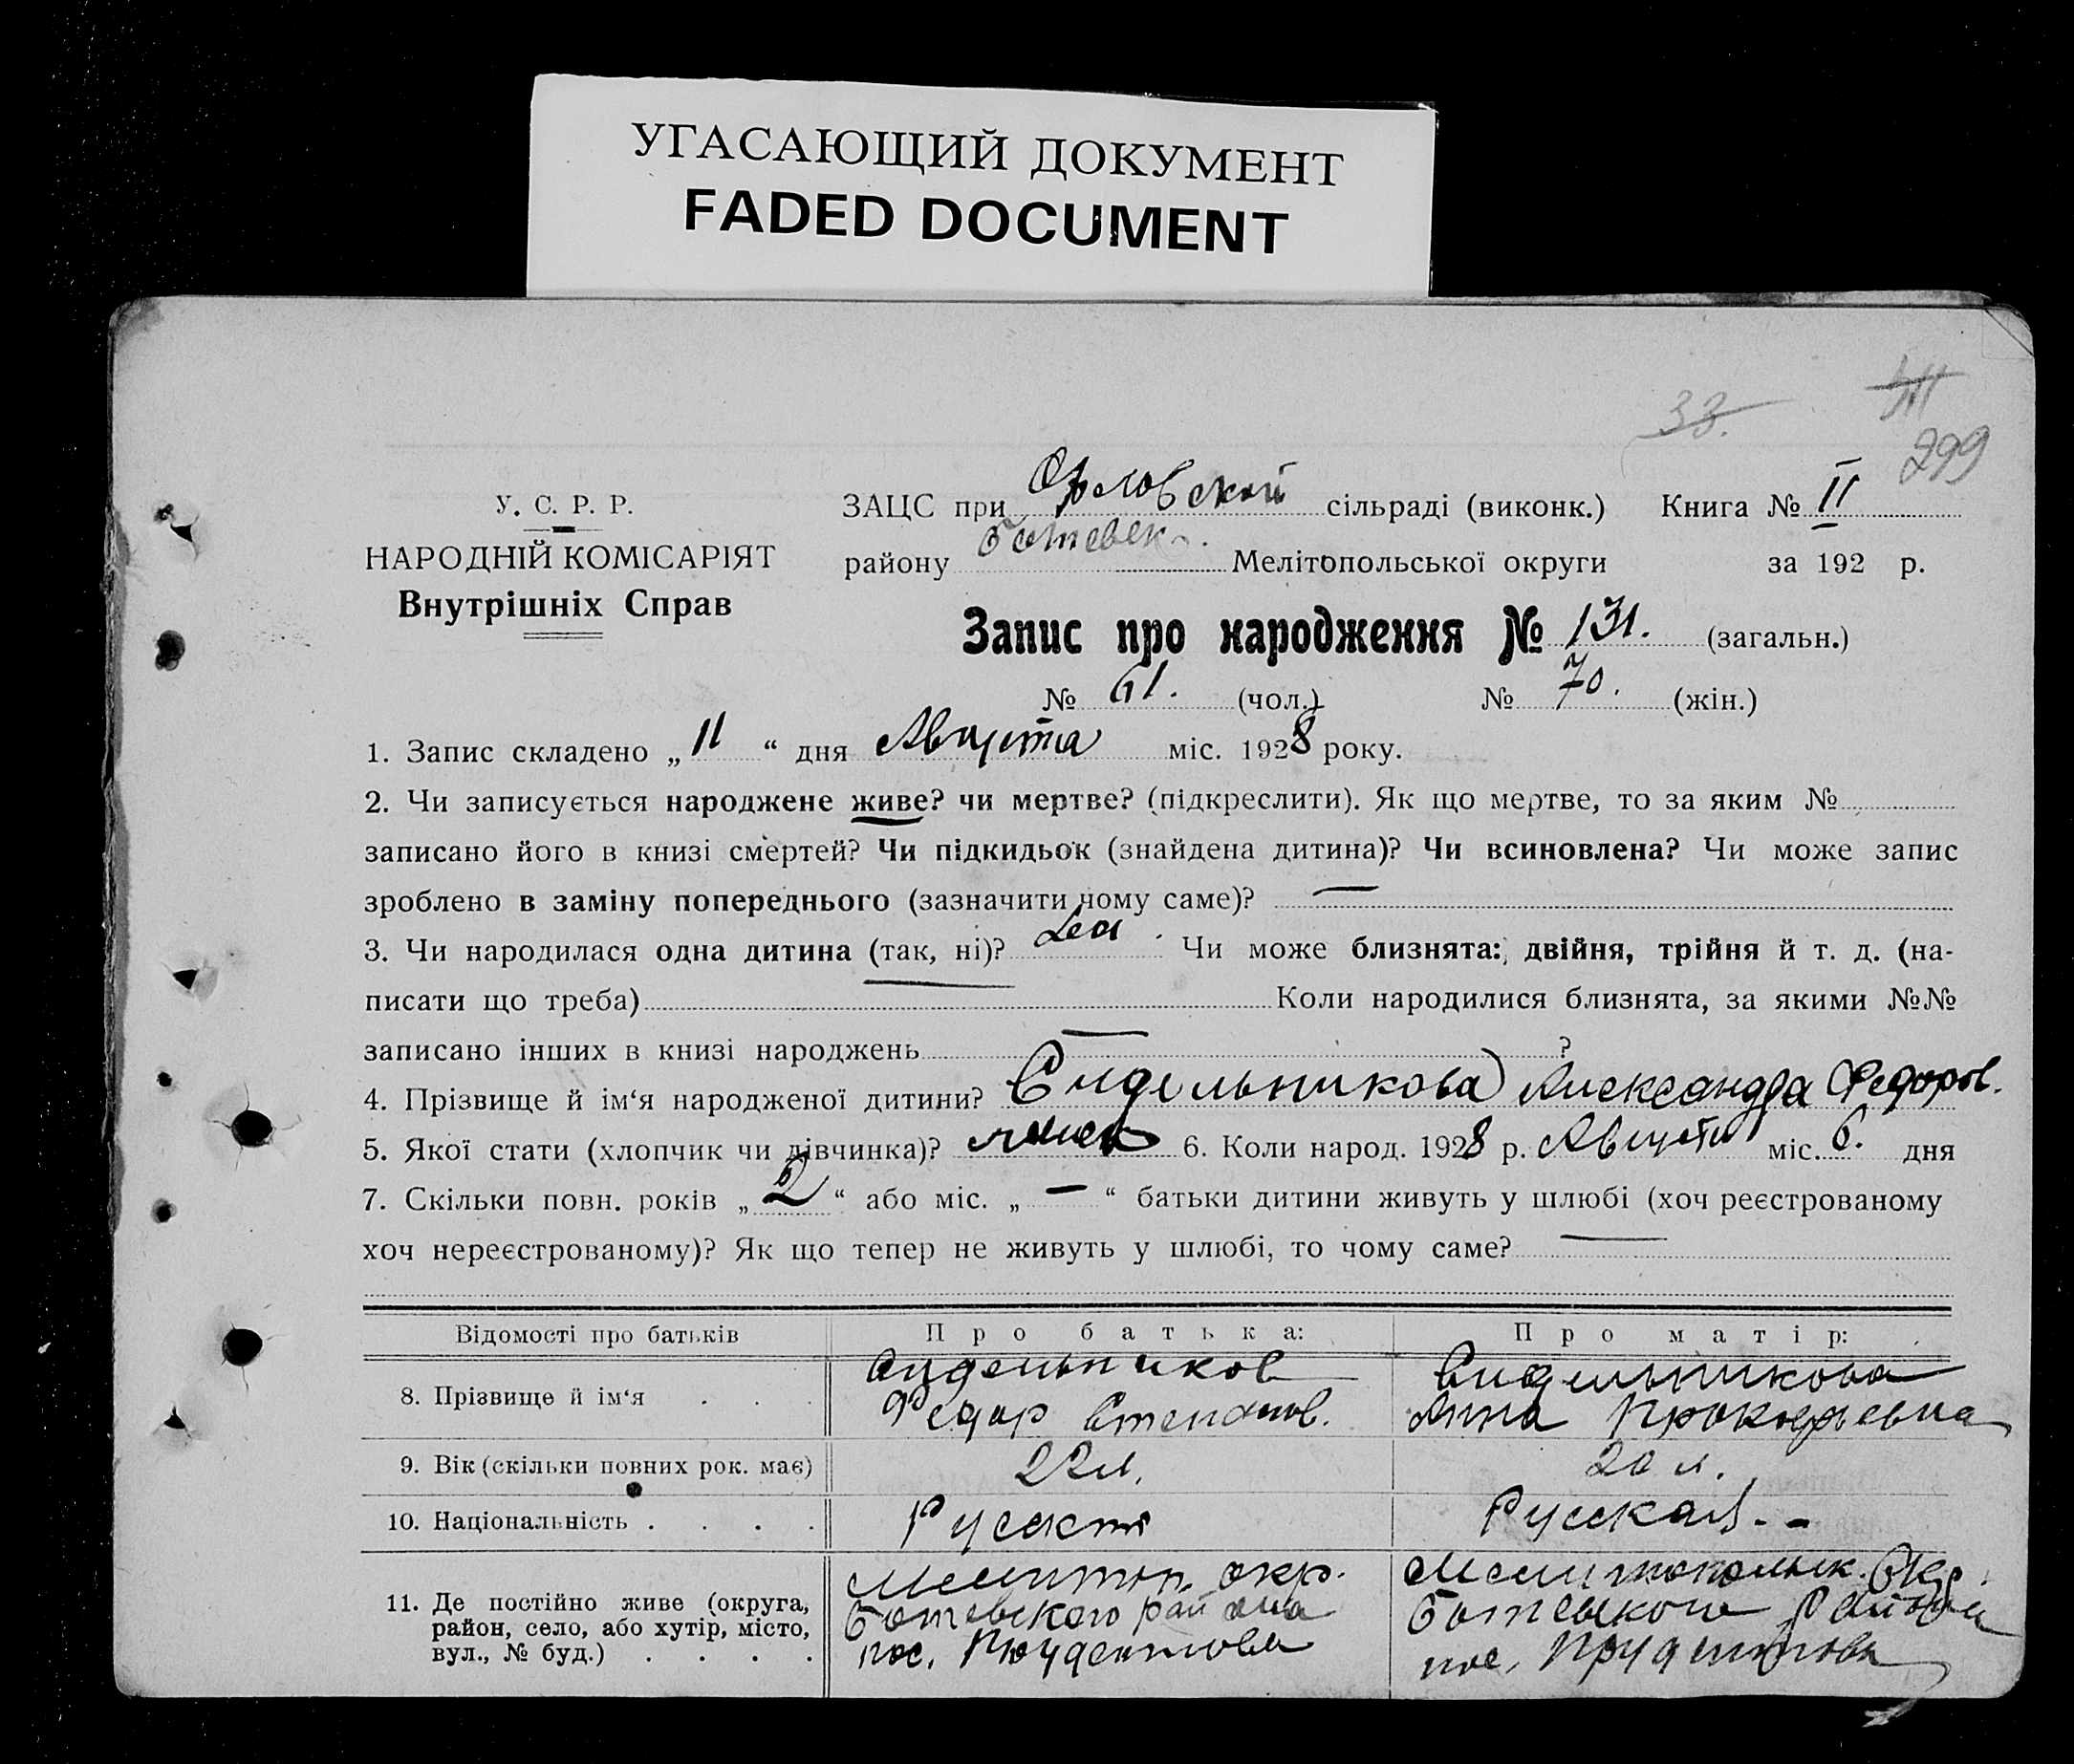 УГАСАЮЩИЙ ДОКУМЕНТ
FADED DOCUMENT
33.
299
У. С. Р. Р.
НАРОДНІЙ КОМІСАРІЯТ
Внутрішніх Справ
ЗАЦС при Орловской сільраді (виконк.) Книга № II
району Ботевск. Мелітопольської округи за 192 р.
Запис про народження № 131. (загальн.)
№ 61. (чол.) № 70. (жін.)
1. Запис складено „ 11 “ дня Августа міс. 1928 року.
2. Чи записується народжене живе? чи мертве? (підкреслити). Як що мертве, то за яким №
записано його в книзі смертей? Чи підкидьок (знайдена дитина)? Чи всиновлена? Чи може запис
зроблено в заміну попереднього (зазначити чому саме)? —
3. Чи народилася одна дитина (так, ні)? Чи може близнята: двійня, трійня й т. д. (на-
писати що треба) Коли народилися близнята, за якими №№
записано інших в книзі народжень — ?
4. Прізвище й ім‘я народженої дитини? Сидельникова Александра Федоров.
5. Якої стати (хлопчик чи дівчинка)? женск 6. Коли народ. 1928 р. Августа міс. 6. дня
7. Скільки повн. років „ 2 “ або міс. „ — “ батьки дитини живуть у шлюбі (хоч реєстрованому
хоч нереєстрованому)? Як що тепер не живуть у шлюбі, то чому саме? —
Відомості про батьків Про батька: Про матір:
8. Прізвище й ім‘я . . . Сидельников Федор Степанов. Сидельникова Анна Прокофьевна
9. Вік (скільки повних рок. має) 22 л. 20 л.
10. Національність . . . . Русский Русская - -
11. Де постійно живе (округа, район, село, або хутір, місто, вул., № буд.) . . . . Мелитоп. окр. Ботевского района пос. Прудентова Мелитопольск. Окр. Ботевского Района пос. Прудентова